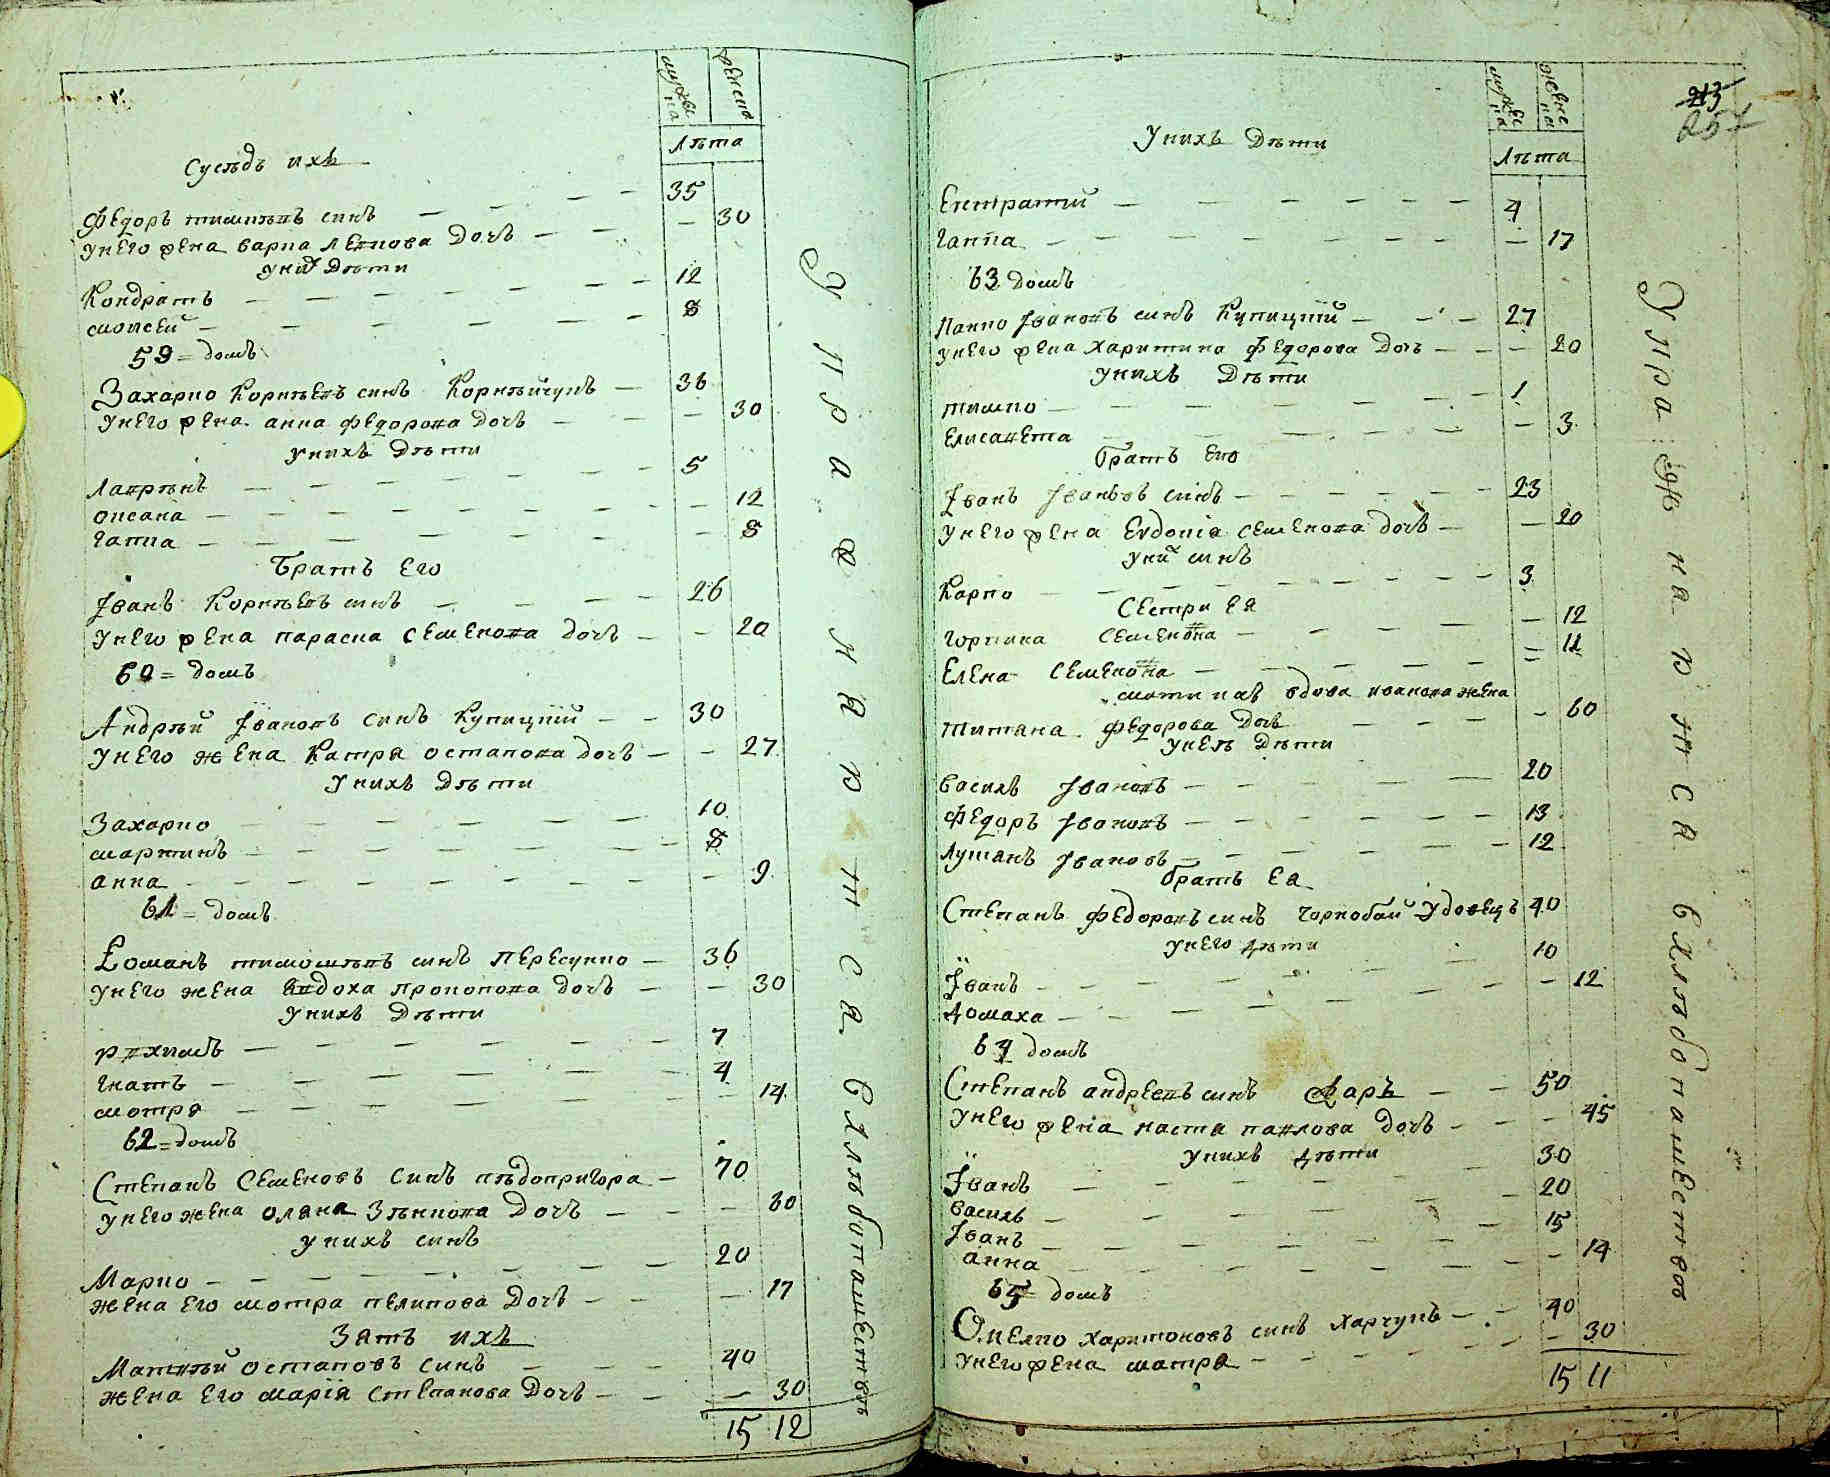 мужеска женска
Лѣта
Сусѣдъ ихъ
Федоръ тимишевъ синъ — 35
унего жена варка левкова дочъ — 30
уних дѣти
Кондратъ — 12
моисей — 8
59 = домъ
Захарко Корнѣевъ синъ Корнѣйчукъ — 36
унего жена анна федорова дочъ — 30
унихъ дѣти
Лаврѣнъ — 5
оксана — 12
ганна — 8
Братъ его
Іванъ Корнѣевъ синъ — 26
унего жена параска семенова дочъ — 20
60 = домъ
Андрѣй Івановъ синъ Купицкій — 30
унего жена катря остапова дочъ — 27
унихъ дѣти
Захарко — 10
мартинъ — 8
анна — 9
61 = домъ
Романъ тимошѣвъ синъ пересунко — 36
унего жена Явдоха прокопова дочъ — 30
унихъ дѣти
явхимъ — 7
гнатъ — 4
мотря — 14
62 = домъ
Степанъ Семеновъ синъ пѣдопригора — 70
унего жена оляна Зѣнкова дочъ — 60
унихъ синъ
Марко — 20
жена его мотра пелипова дочъ — 17
Зять ихъ
Матвѣй остаповъ синъ — 40
жена его марія степанова дочъ — 30
15 12
213
257
мужеска женска
Лѣта
Унихъ дѣти
Евстратій — 4
ганна — 17
63 домъ
Панко Івановъ синъ Купицкій — 27
унего жена харитина федорова дочъ — 20
унихъ дѣти
тишко — 1
елисавета — 3
братъ его
Іванъ Івановъ синъ — 23
унего жена Evdoкія семенова дочъ — 20
уних синъ
Карпо — 3
сестри ея
горпина семенова — 12
Елена семенова — 11
мати ихъ вдова иванова жена
титяна федорова дочъ — 60
унея дѣти
василь Івановъ — 20
федоръ Івановъ — 13
лукянъ Івановъ — 12
братъ ея
Степанъ федоровъ синъ чорнобай удовецъ 40
унего дѣти
Іванъ — 10
домаха — 12
64 домъ
Степанъ андреевъ синъ фаръ — 50
унего жена наста павлова дочъ — 45
унихъ дѣти
Іванъ — 30
василь — 20
Іванъ — 15
анна — 14
65 домъ
Омелко харитоновъ синъ харчукъ — 40
унего жена матра — 30
15 11